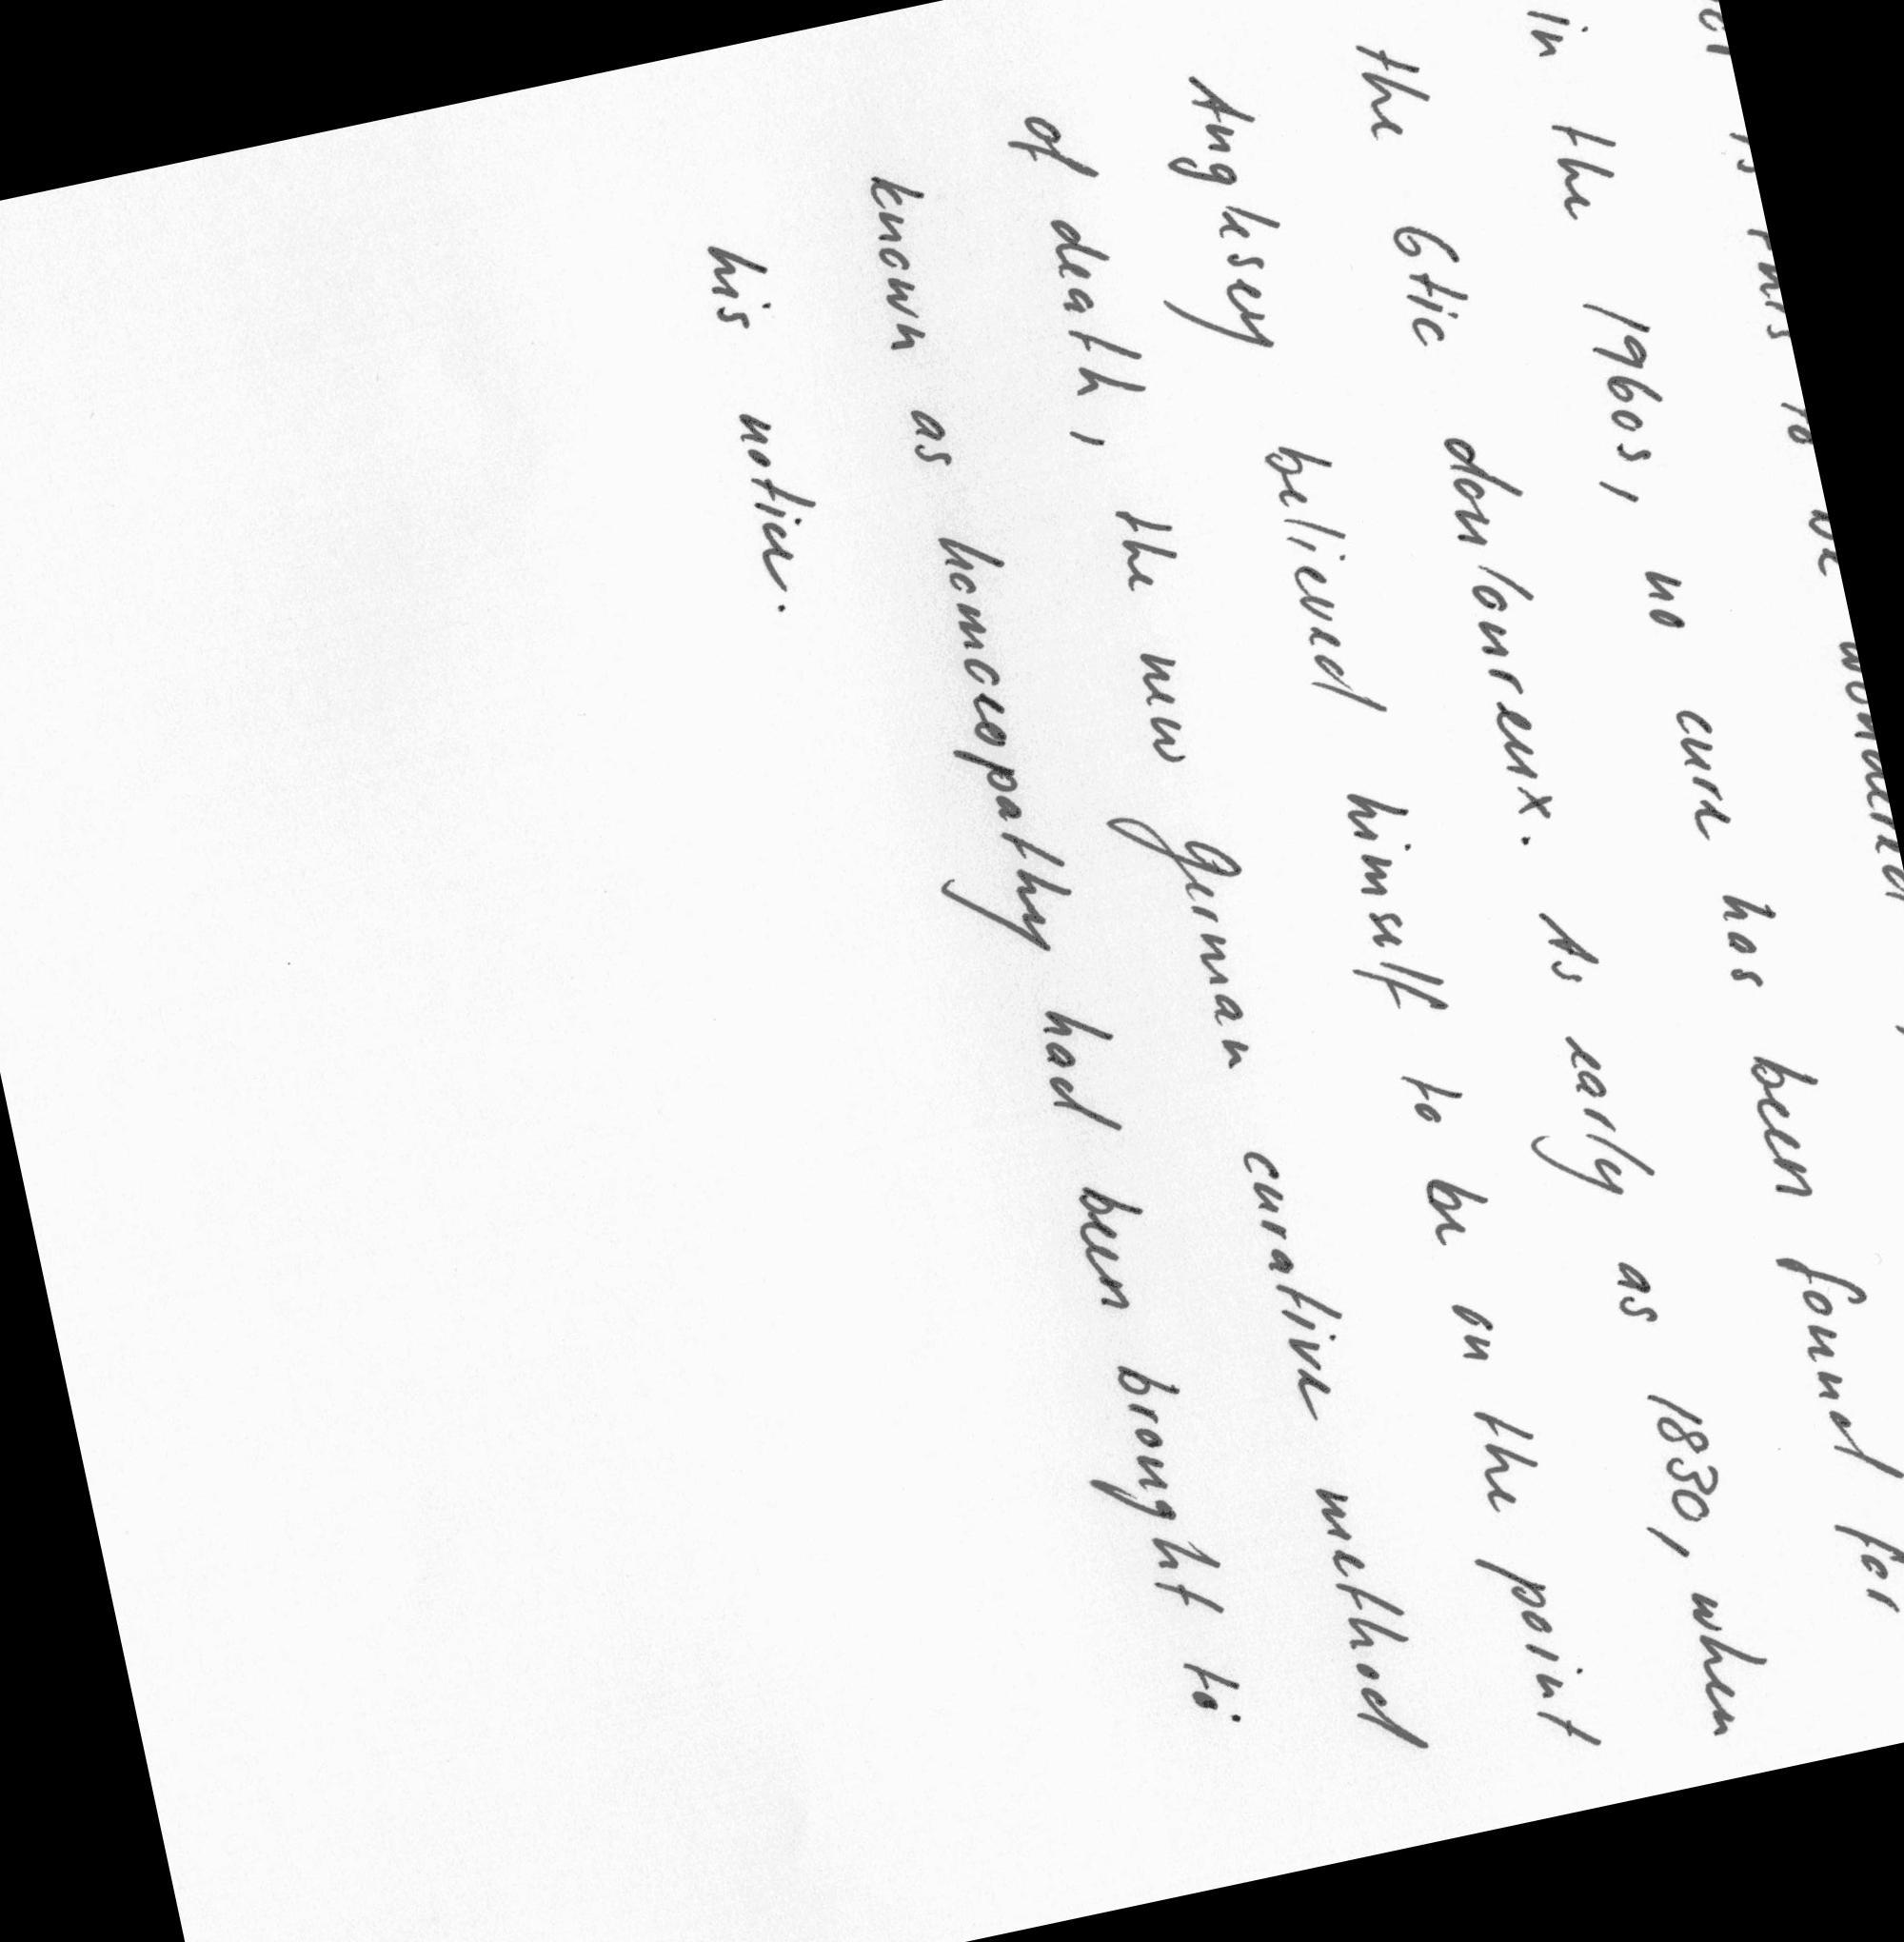 is this to be wondered
in the 1960s, no cure has been found for
the 6tic douloureux. As early as 1830, when
Anglesey believed himself to be on the point
of death, the new German curative method
known as homoeopathy had been brought to
his notice.